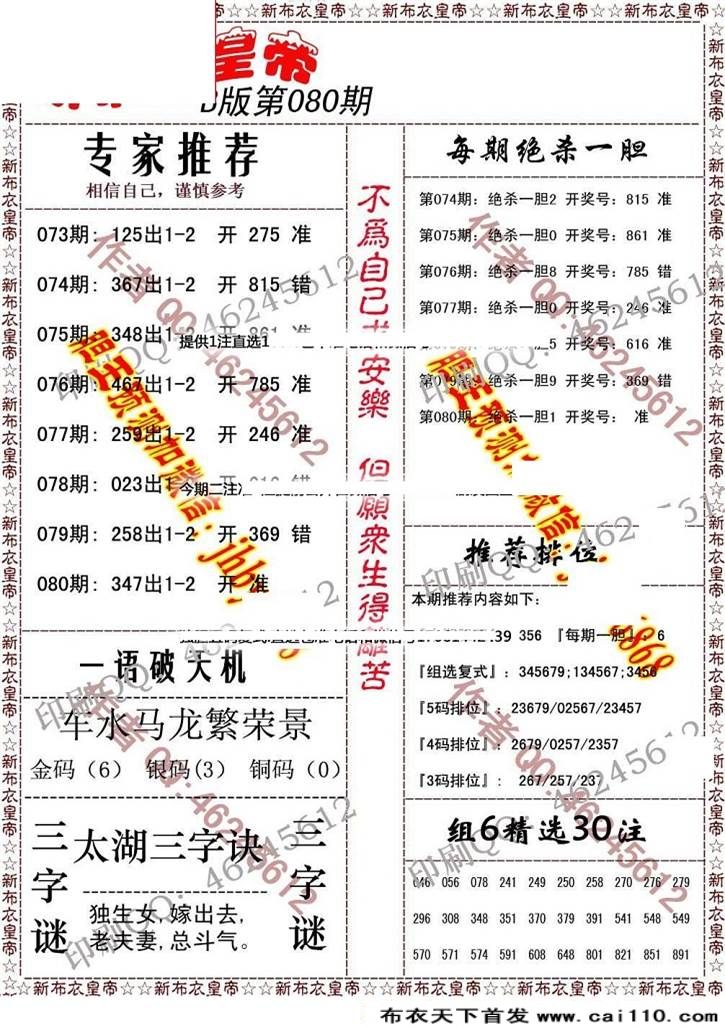 ☆☆新布衣皇帝☆☆新布衣皇帝☆☆新布衣皇帝☆☆新布衣皇帝☆☆
皇帝
B版第080期
专家推荐
相信自己，谨慎参考
073期: 125出1-2 开 275 准
074期: 367出1-2 开 815 错
075期: 348出1-2 开 861 准
提供1注直选1
076期: 467出1-2 开 785 准
077期: 259出1-2 开 246 准
078期: 023出1
今期二注
079期: 258出1-2 开 369 错
080期: 347出1-2 开 准
一语破天机
车水马龙繁荣景
金码（6） 银码(3) 铜码（0）
三字谜
太湖三字诀
独生女,嫁出去,
老夫妻,总斗气。
三字谜
不為自己求安樂 但願衆生得離苦
每期绝杀一胆
第074期: 绝杀一胆2 开奖号: 815 准
第075期: 绝杀一胆0 开奖号: 861 准
第076期: 绝杀一胆8 开奖号: 785 错
第077期: 绝杀一胆0 开奖号: 246 准
5 开奖号: 616 准
第079期: 绝杀一胆9 开奖号: 369 错
第080期: 绝杀一胆1 开奖号: 准
推荐排位
本期推荐内容如下:
39 356 『每期一胆』: 6
『组选复式』: 345679;134567;3456
『5码排位』: 23679/02567/23457
『4码排位』: 2679/0257/2357
『3码排位』: 267/257/237
组6精选30注
046 056 078 241 249 250 258 270 276 279
296 308 348 351 370 379 391 541 548 549
570 571 574 591 608 648 801 821 851 891
作者 QQ:46245612
印刷QQ: 46245612
☆☆新布衣皇帝☆☆新布衣皇帝☆☆新布衣皇帝☆☆新布衣皇帝☆☆
布衣天下首发 www.cai110.com